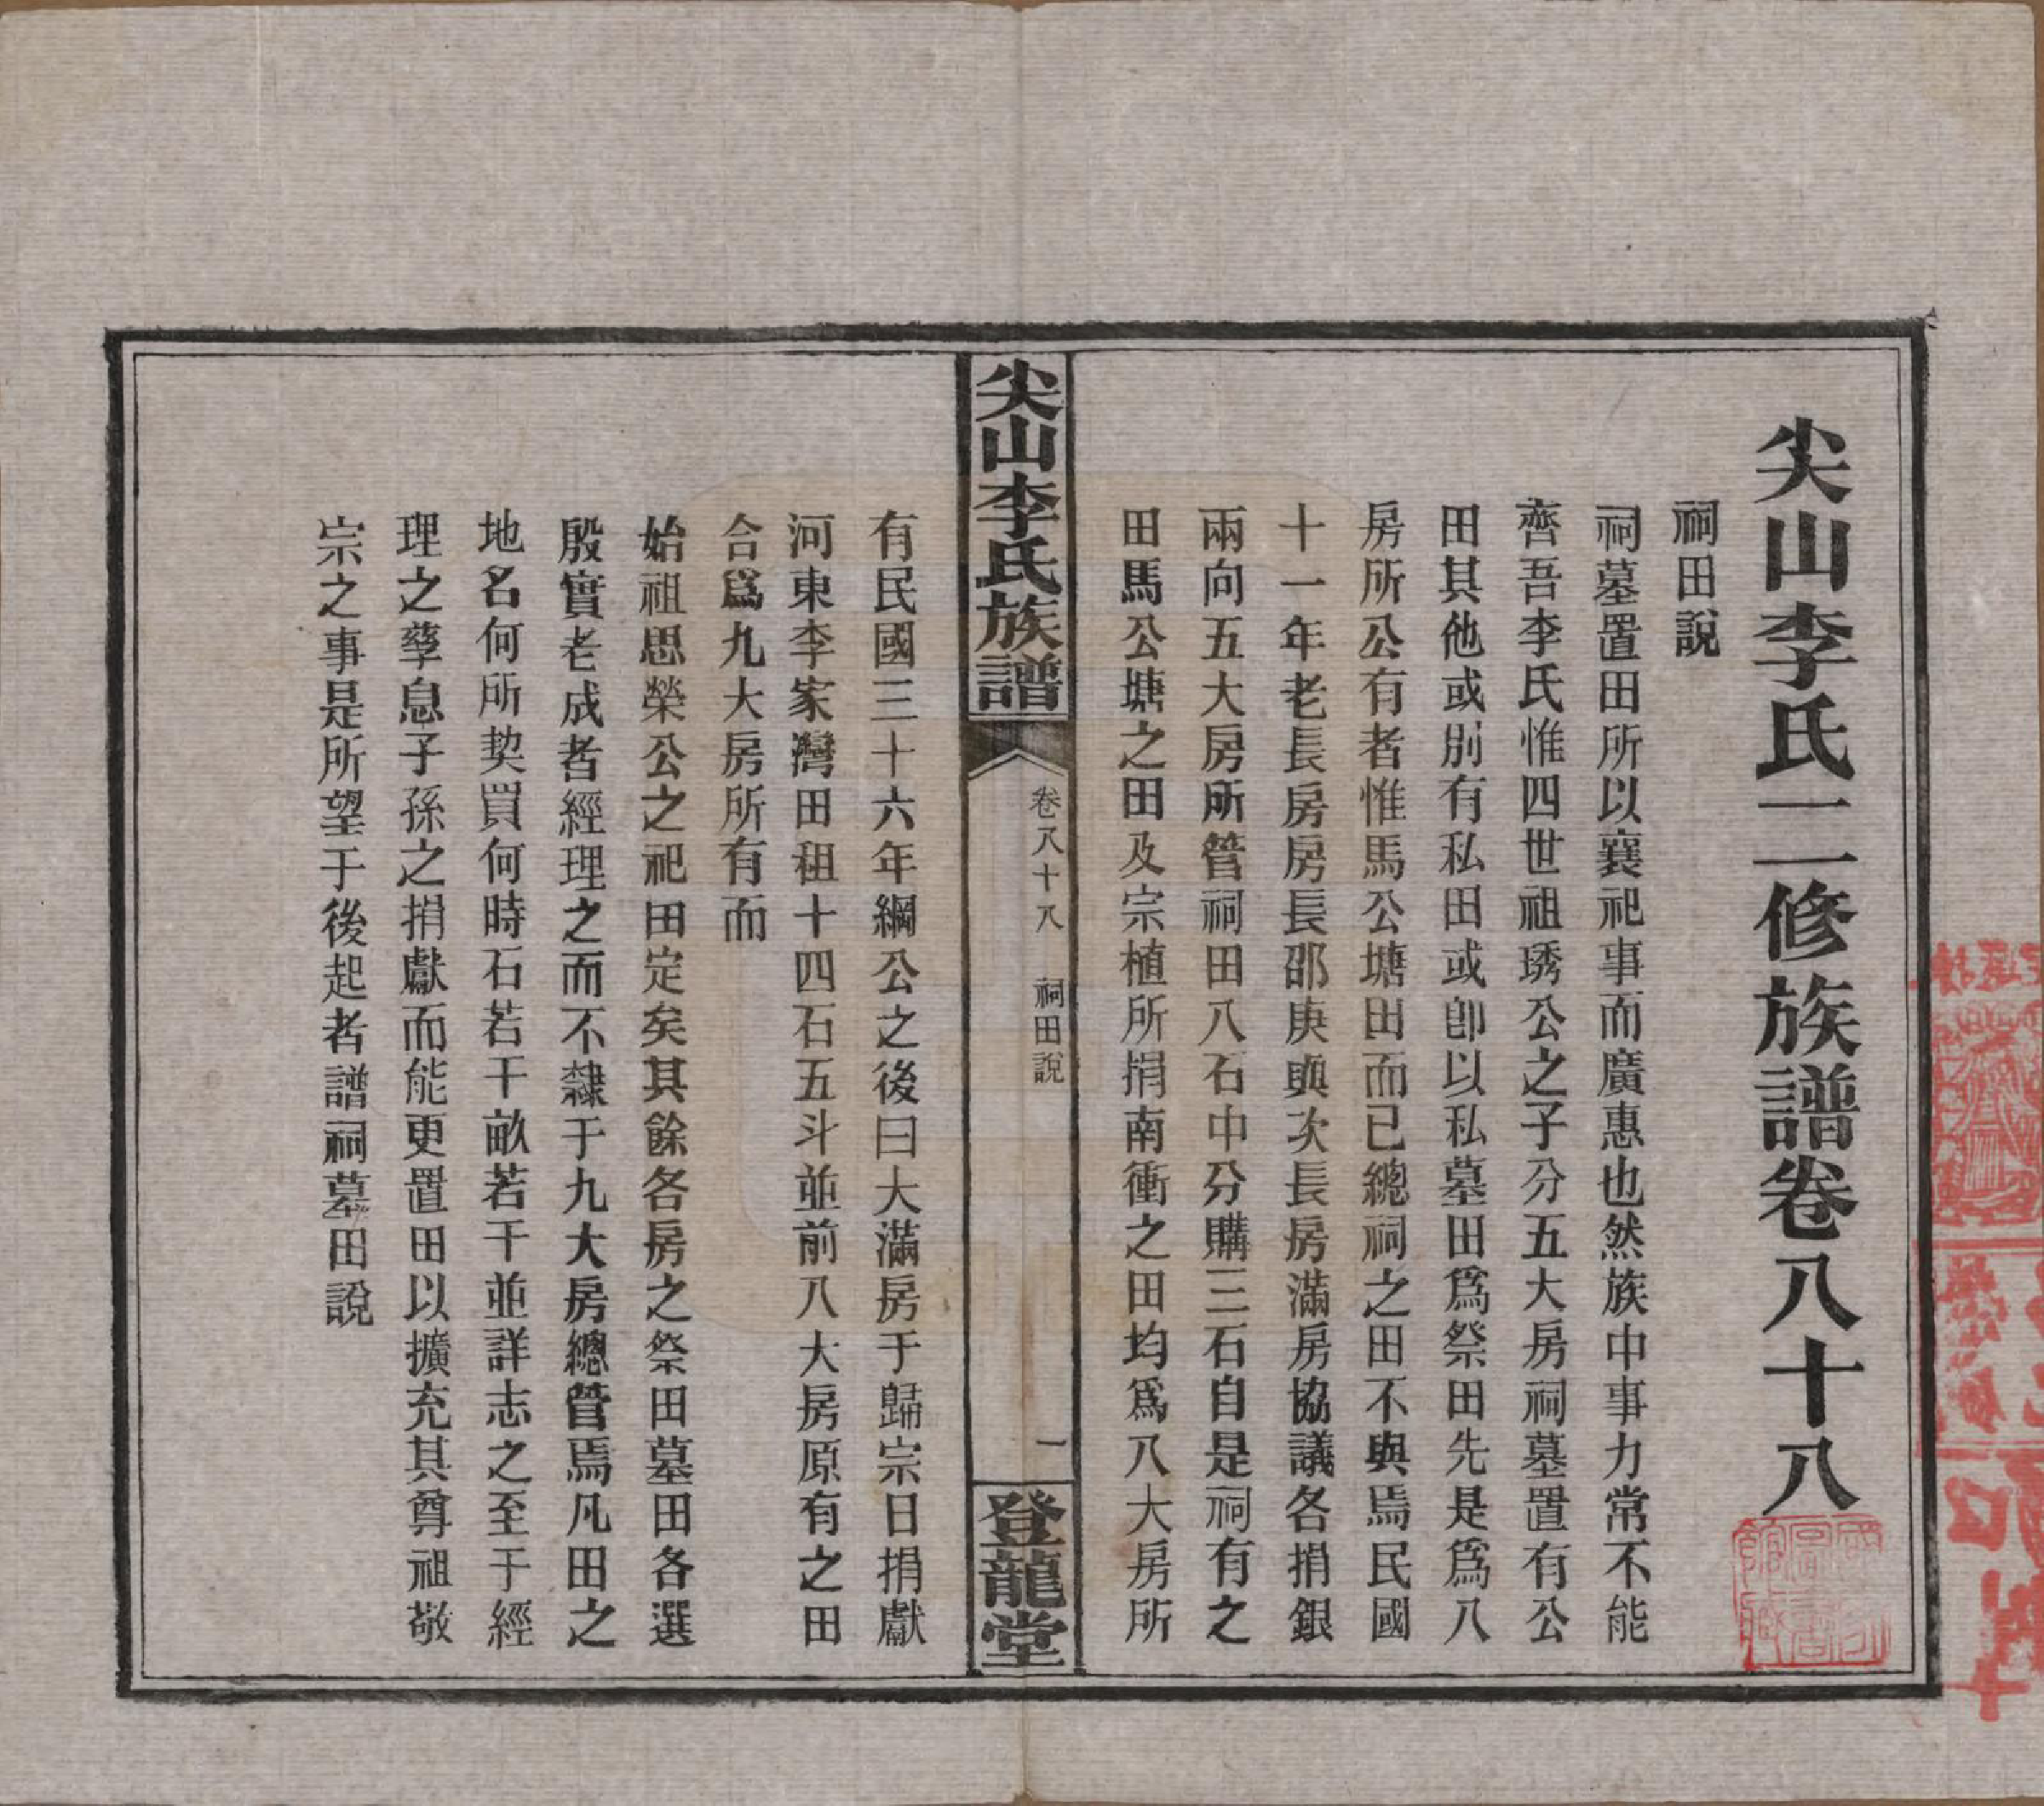 尖山李氏二修族譜卷八十八
祠田說
祠墓置田所以襄祀事而廣惠也然族中事力常不能
齊吾李氏惟四世祖琇公之子分五大房祠墓置有公
田其他或別有私田或卽以私墓田爲祭田先是爲八
房所公有者惟馬公塘田而已總祠之田不與焉民國
十一年老長房房長邵庚與次長房滿房協議各捐銀
兩向五大房所管祠田八石中分購三石自是祠有之
田馬公塘之田及宗植所捐南衝之田均爲八大房所
尖山李氏族譜
卷八十八
祠田說
一
登龍堂
有民國三十六年綱公之後曰大滿房于歸宗日捐獻
河東李家灣田租十四石五斗並前八大房原有之田
合爲九大房所有而
始祖思榮公之祀田定矣其餘各房之祭田墓田各選
殷實老成者經理之而不隸于九大房總管焉凡田之
地名何所契買何時石若干畝若干並詳志之至于經
理之孳息子孫之捐獻而能更置田以擴充其尊祖敬
宗之事是所望于後起者譜祠墓田說